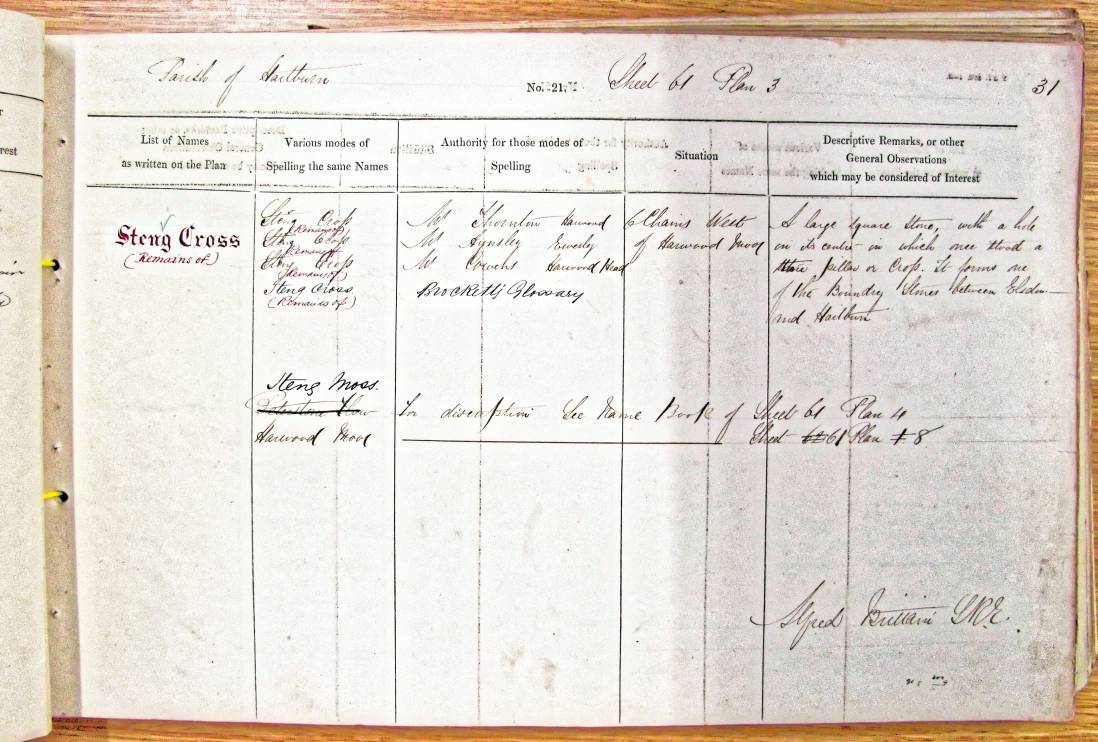 Parish of Hartburn No. 21. Sheet 61 Plan 3 31
List of Names
as written on the Plan
Various modes of
Spelling the same Names
Authority for those modes of
Spelling
Situation
Descriptive Remarks, or other
General Observations
which may be considered of Interest
Steng Cross
(Remains of)
Steng Cross
(Remains of)
Steng Cross
(Remains of)
Steng Cross
(Remains of)
Steng Cross
(Remains of)
Mr Thornton Harwood
Mr Aynsley
Mr Cowens Harwood Head
Brockett's Glossary
6 Chains West
of Harwood Moor
A large square Stone, with a hole
in its centre in which once stood a
pillar or Cross. It forms one
of the Boundry Stones between Elsdon
and Hartburn
Steng Moss.
For discription See Name Book of Sheet 61 Plan 4
Harwood Moor Sheet 61 Plan 8.
Alfred Brittain